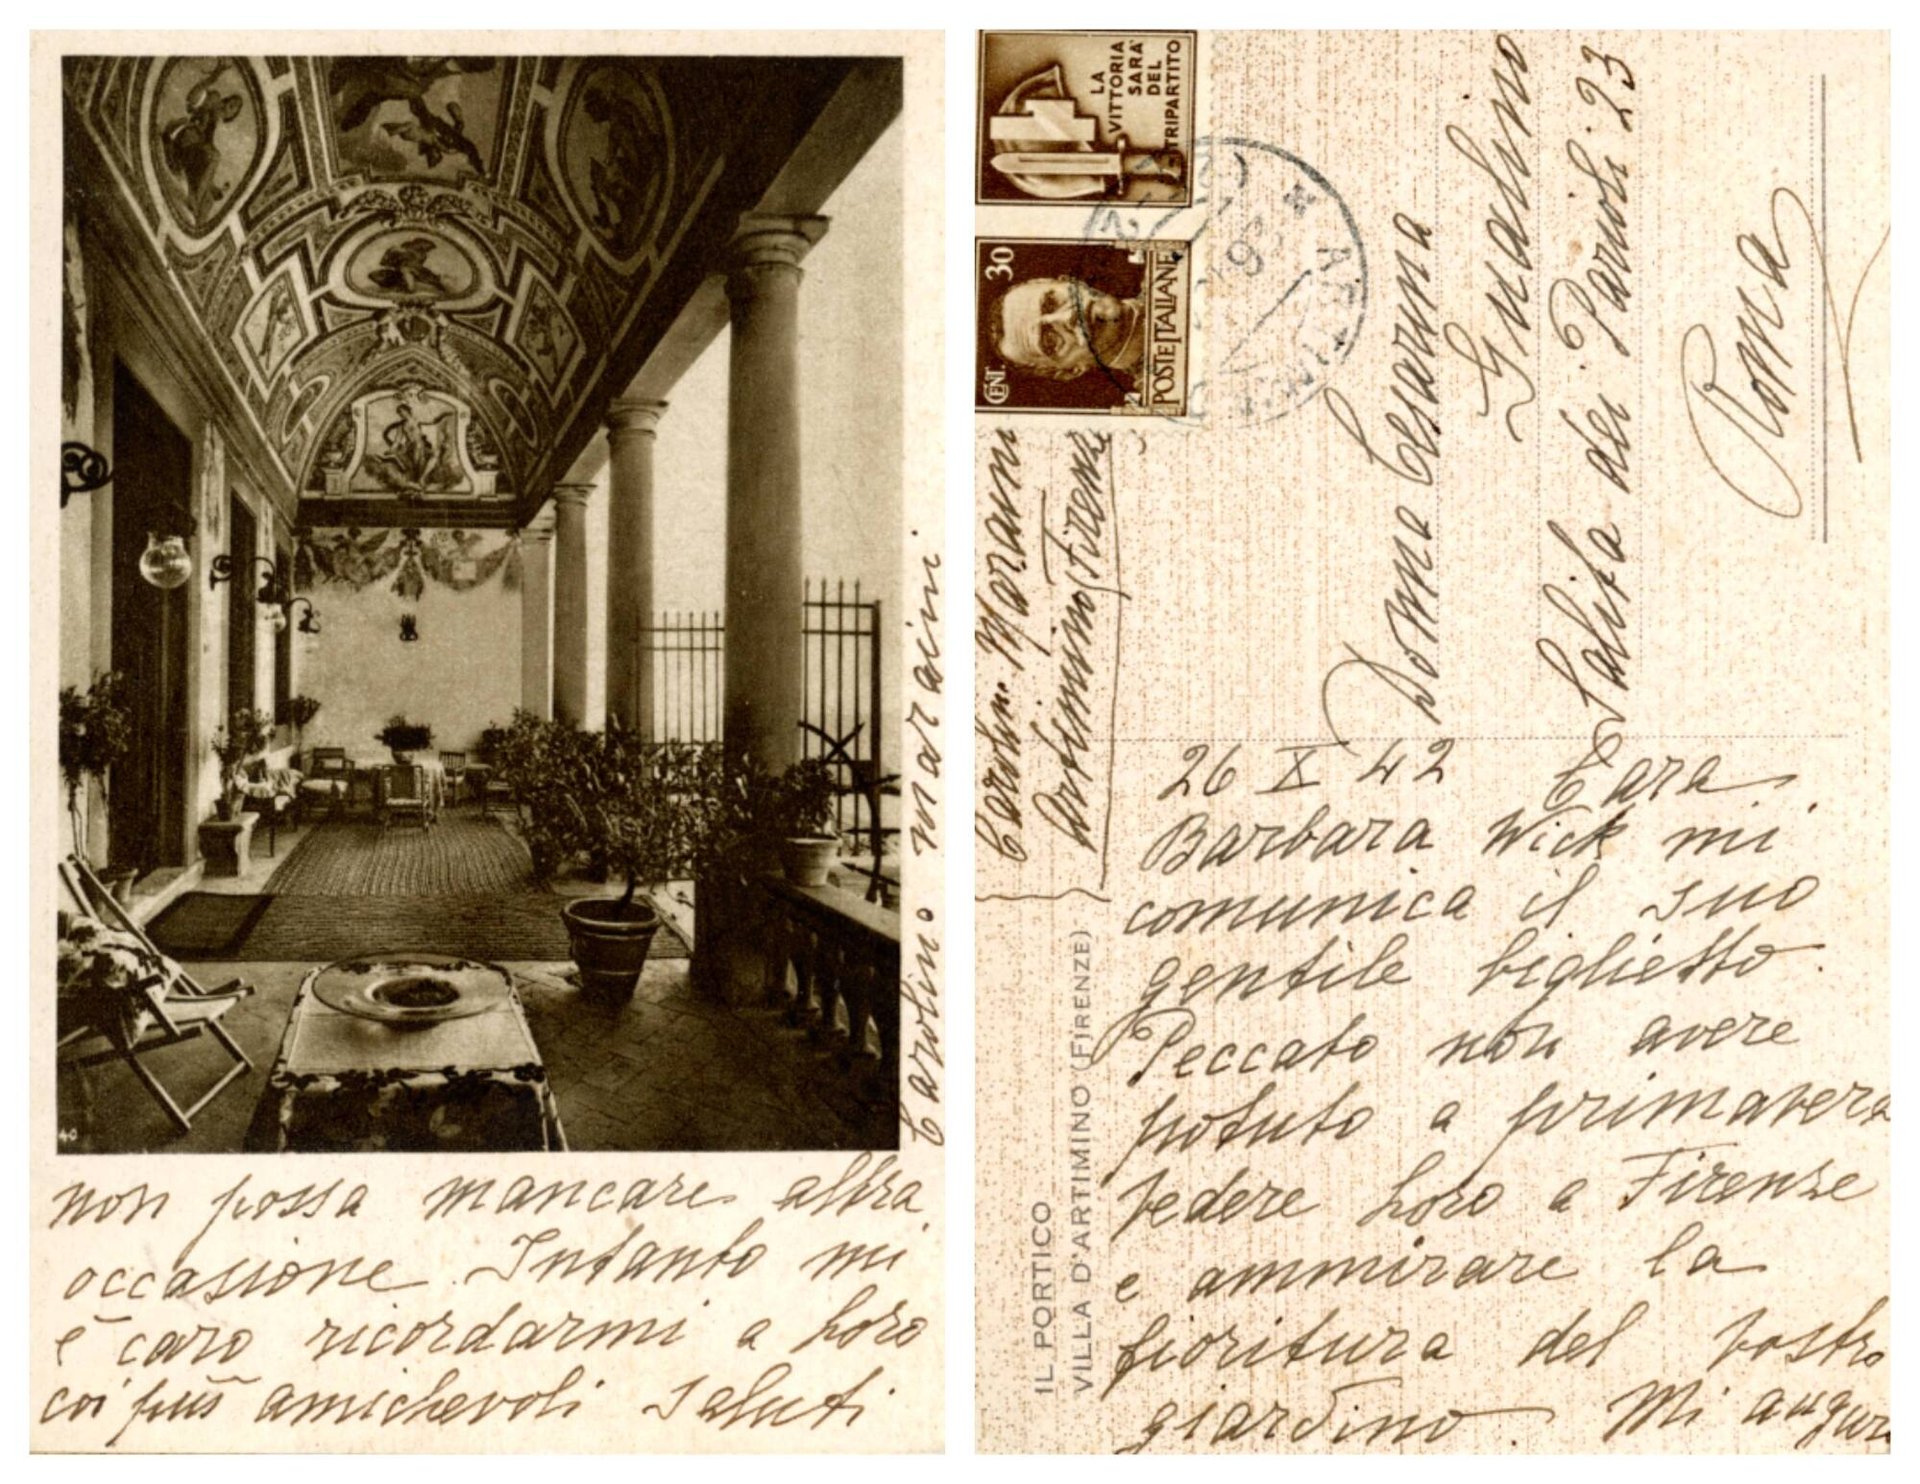 40
non possa mancare altra
occasione. Intanto mi
è caro ricordarmi a Loro
coi più amichevoli saluti
Carolino Maraini
LA
VITTORIA
SARÀ
DEL
TRIPARTITO
CENT. 30
POSTE ITALIANE
ARTIMINO
Carolino Maraini
Artimino (Firenze
Donna Cesarina
Gualino
Salita dei Parioli 23
Roma
26 X 42 Cara
Barbara Wick mi
comunica il suo
gentile biglietto.
Peccato non avere
potuto a primavera
vedere Loro a Firenze
e ammirare la
fioritura del vostro
giardino. Mi auguro
IL PORTICO
VILLA D'ARTIMINO (FIRENZE)